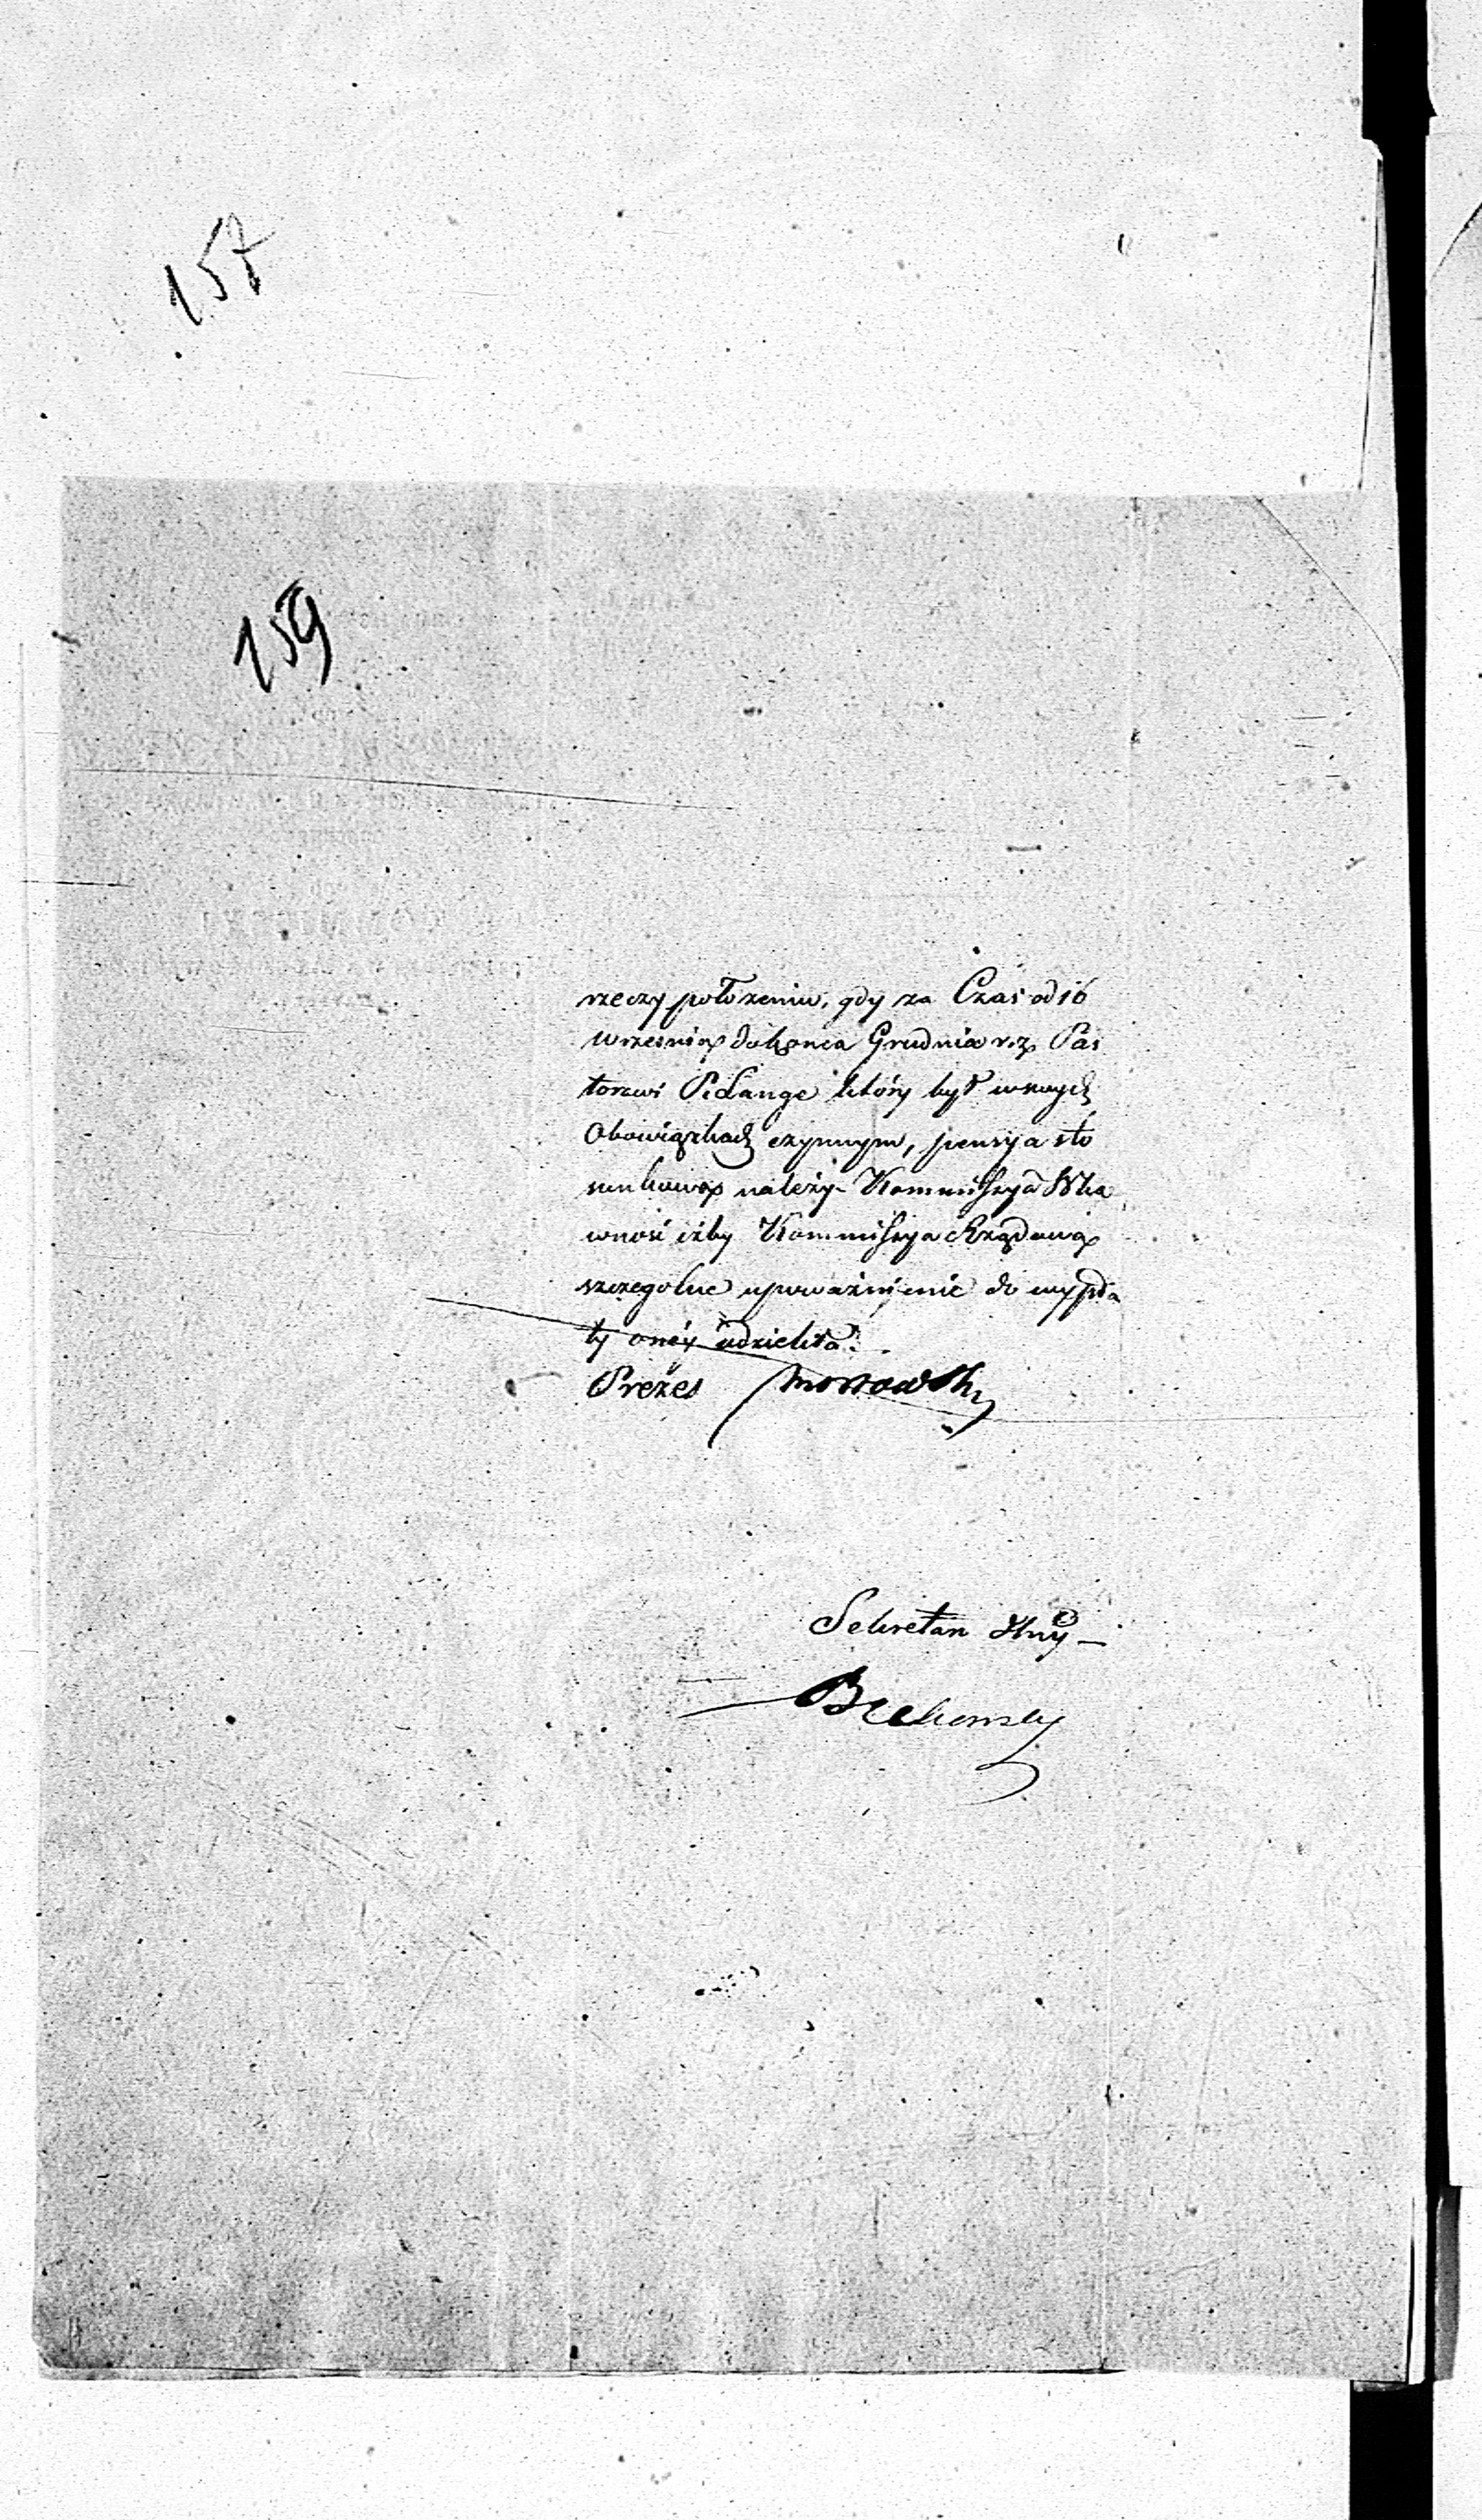 157
159
rzeczy położeniu, gdy za Czas od 16
września do końca Grudnia r. z. Pas
torowi P. Lange który był w swych
Obowiązkach czynnym, pensya sto
sunkowa należy. Kommissya Wka
wnosi iżby Kommissya Rządowa
szczegolne upoważnienie do wypła
ty onéy udzieliła.
Prezes
Sekretarz Jlny